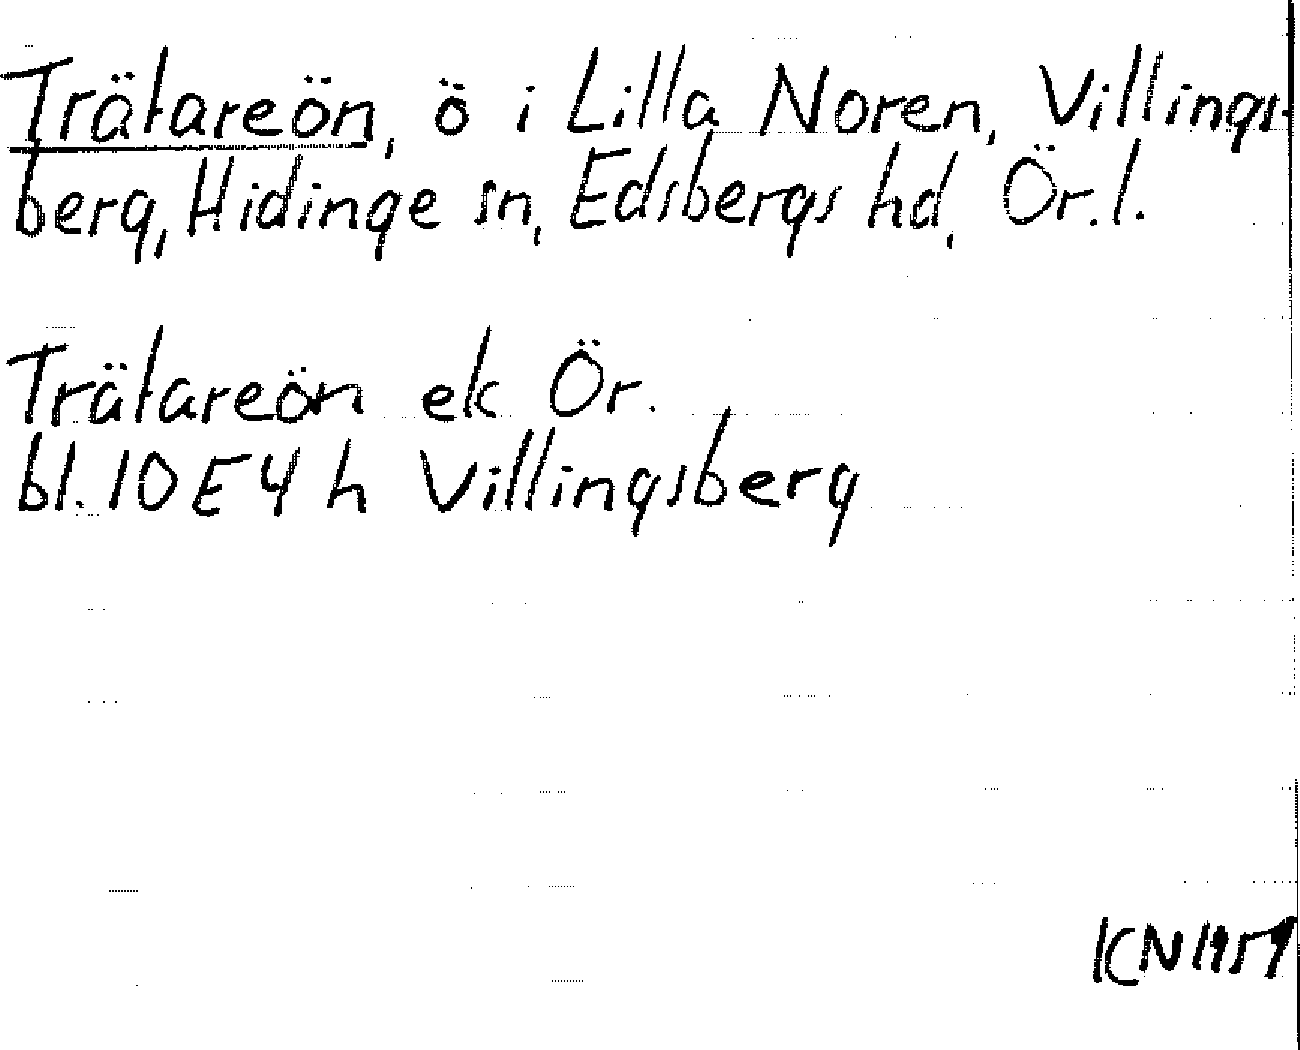 Trätareön, ö i Lilla Noren, Villings-
berg, Hidinge sn, Edsbergs hd, Ör.l.
Trätareön ek Ör.
bl. 10E4h Villingsberg
KN 1959